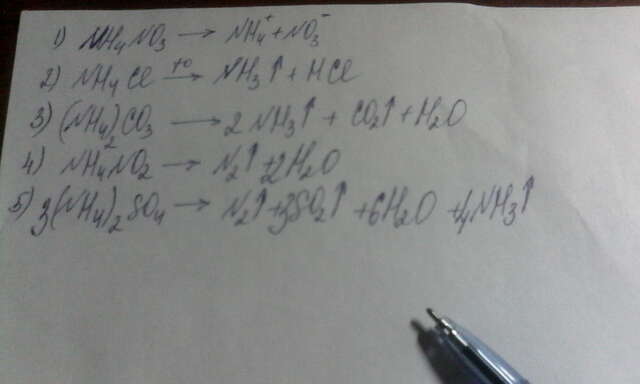 1) NH₄NO₃ → NH₄⁺ + NO₃⁻
2) NH₄Cl →t° NH₃↑ + HCl
3) (NH₄)₂CO₃ → 2NH₃↑ + CO₂↑ + H₂O
4) NH₄NO₂ → N₂↑ + 2H₂O
5) 3(NH₄)₂SO₄ → N₂↑ + 3SO₂↑ + 6H₂O + 4NH₃↑